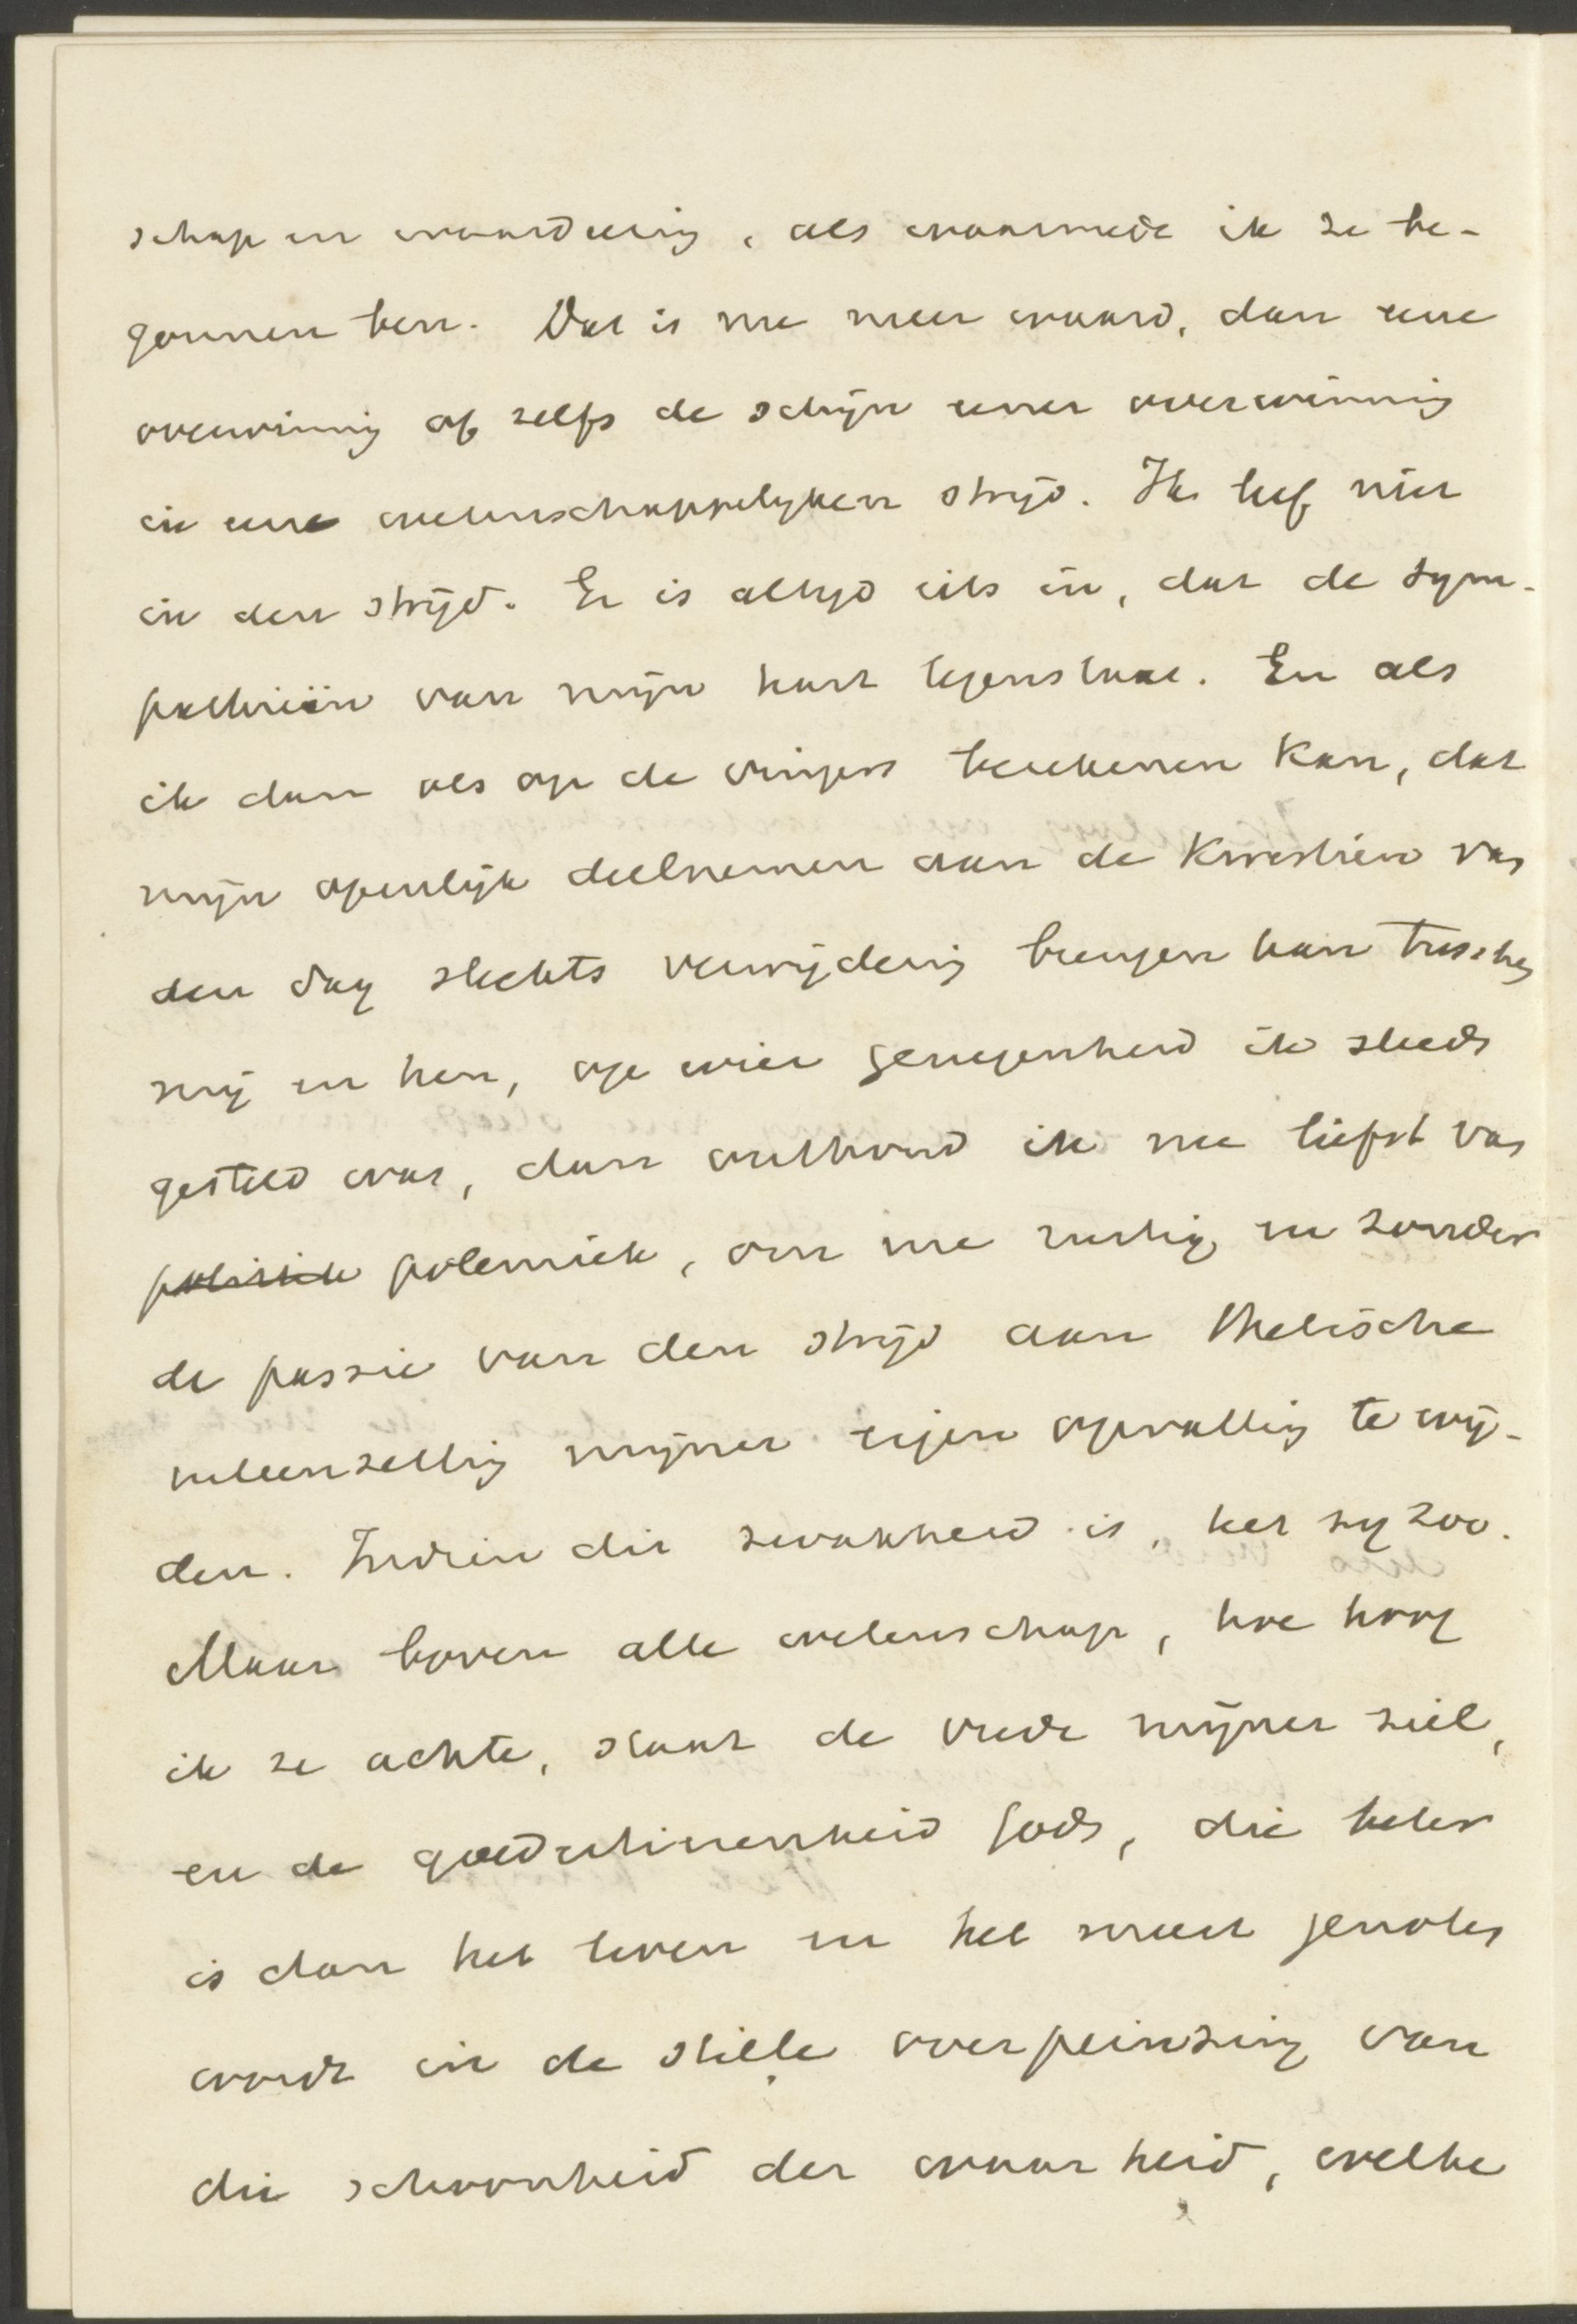 schap en waardeering, als waarmede ik ze be-
gonnen ben. Dat is me meer waard, dan eene
overwinning of zelfs de schijn eener overwinning
in eene wetenschappelyken strijd. Ik leef niet
in den strijd. Er is altyd iets in, dat de sym-
pathieën van mijn hart tegenstaat. En als
ik dan als op de vingers berekenen kan, dat
mijn openlijk deelnemen aan de kwestien van
den dag slechts verwijdering brengen kan tusschen
mij en hen, op wier genegenheid ik steeds
gesteld was, dan onthoud ik me liefst van
politiek polemiek, om me rustig en zonder
de passie van den strijd aan thetische
uiteenzetting mijner eigen opvatting te wij-
den. Indien dit zwakheid is, het zij zoo.
Maar boven alle wetenschap, hoe hoog
ik ze achte, staat de vrede mijner ziel,
en de goedertierenheid Gods, die beter
is dan het leven en het meest genoten
wordt in de stille overpeinzing van
die schoonheid der waarheid, welke